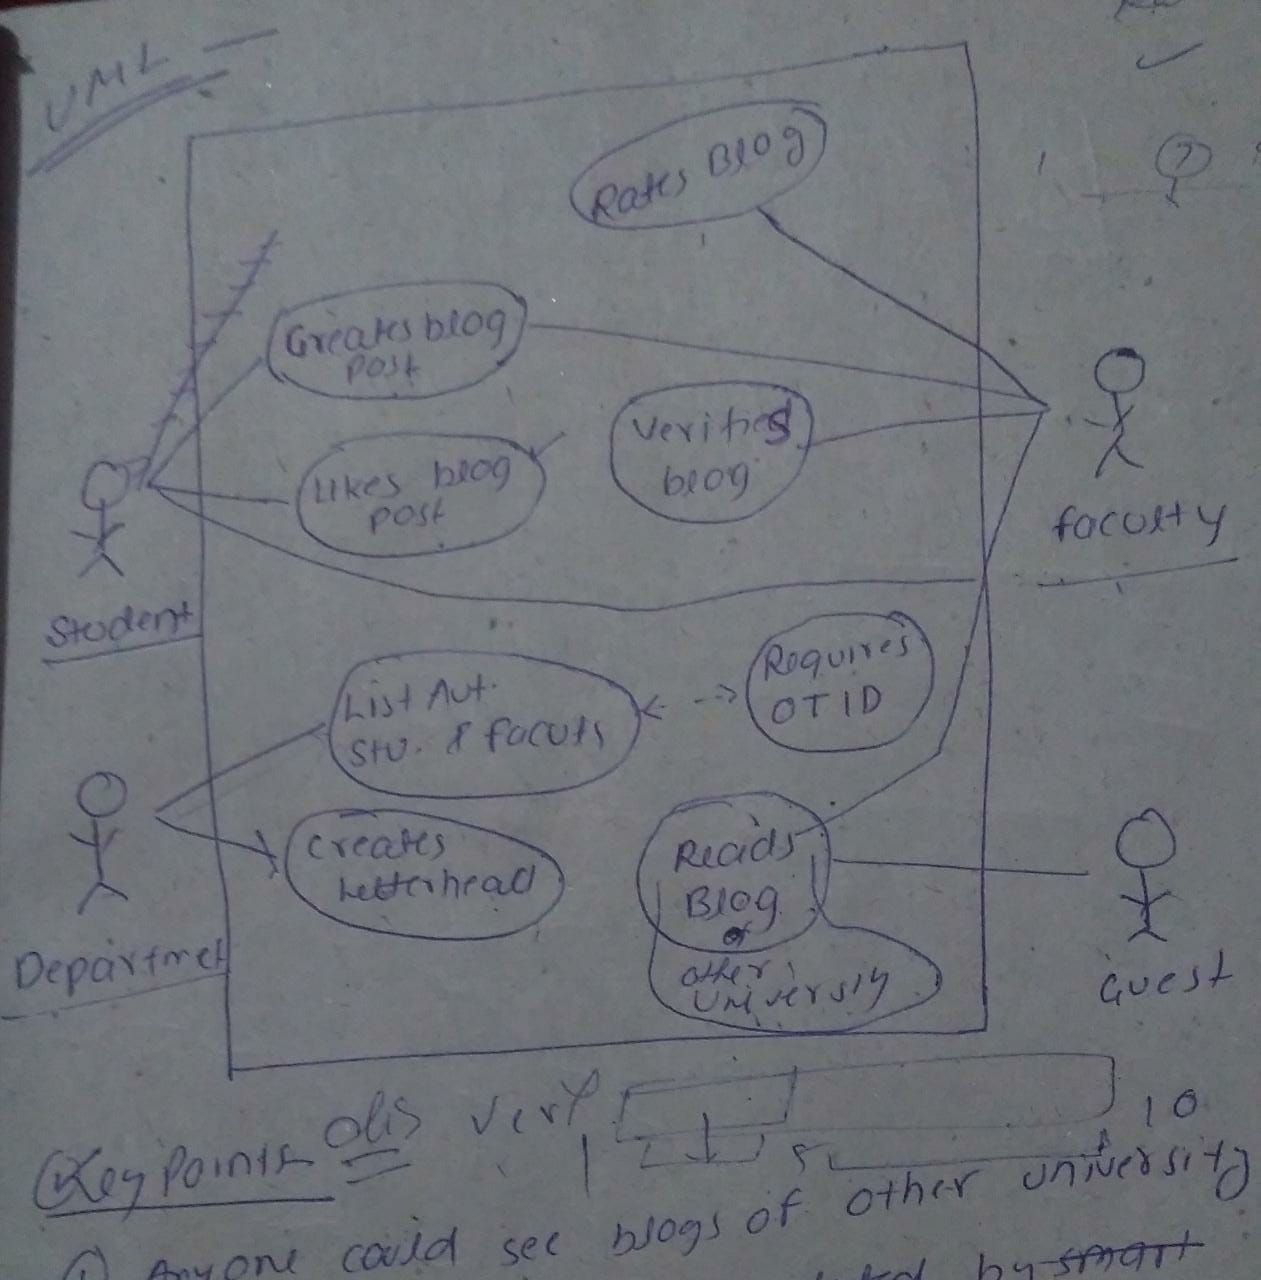 UML
Rates Blog
Creates blog
post
Likes blog
post
Verifies
blog
faculty
Student
List Aut.
Stu. & facuts
Requires
OTID
Creates
Letterhead
Reads
Blog
of
other
University
Departmet
Guest
Key Points
1 5 10
① Anyone could see blogs of other university
by smart